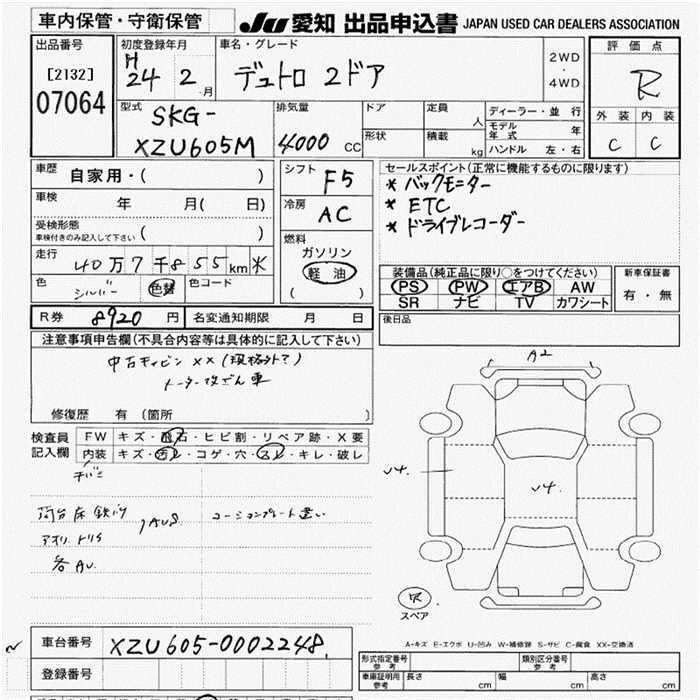 車内保管・守衛保管
JU 愛知 出品申込書 JAPAN USED CAR DEALERS ASSOCIATION
出品番号
[2132]
07064
初度登録年月
H
24 2 月
車名・グレード
デュトロ 2ドア
2WD
・
4WD
評価点
R
外装 内装
C C
型式
SKG-
XZU605M
排気量
4000 CC
ドア
形状
定員 人
積載 kg
ディーラー・並行
モデル年式 年
ハンドル 左・右
車歴 自家用・( )
車検 年 月( 日)
受検形態
車検付きのみ記入して下さい ( )
走行 40万7千855km ※
色 シルバー 色替 色コード
シフト F5
冷房 AC
燃料
ガソリン
軽油
( )
セールスポイント(正常に機能するものに限ります)
* バックモニター
* ETC
* ドライブレコーダー
装備品(純正品に限り○をつけてください)
PS PW エアB AW
SR ナビ TV カワシート
新車保証書
有・無
R券 8920 円 名変通知期限 月 日
後日品
注意事項申告欄(不具合内容等は具体的に記入して下さい)
中古キャビン ××(規格外?)
メーター改ざん車
修復歴 有 (箇所 )
検査員
記入欄
FW キズ・飛石・ヒビ割・リペア跡・X要
内装 キズ・汚レ・コゲ・穴・スレ・キレ・破レ
荷台床鉄バリ AUS コーションプレート違い
アオリ トリイ
各AU
A2
U4.
U4.
スペア
A-キズ E-エクボ U-凹み W-補修跡 S-サビ C-腐食 XX-交換済
車台番号 XZU605-0002248
登録番号
形式指定番号
参考
類別区分番号
参考
車庫証明用
参考
長さ cm 幅 cm 高さ cm